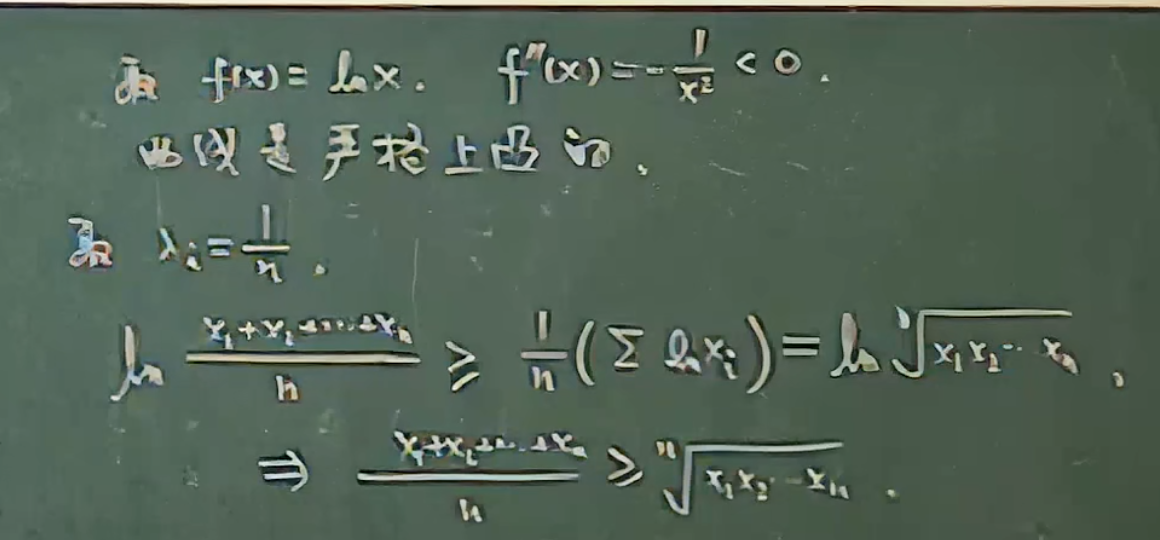 取 f(x) = ln x. f''(x) = -1/x² < 0.
曲线是严格上凸的.
取 λᵢ = 1/n.
ln (x₁+x₂+…+xₙ)/n ≥ 1/n (Σ ln xᵢ) = ln ⁿ√(x₁x₂…xₙ),
⇒ (x₁+x₂+…+xₙ)/n ≥ ⁿ√(x₁x₂…xₙ).